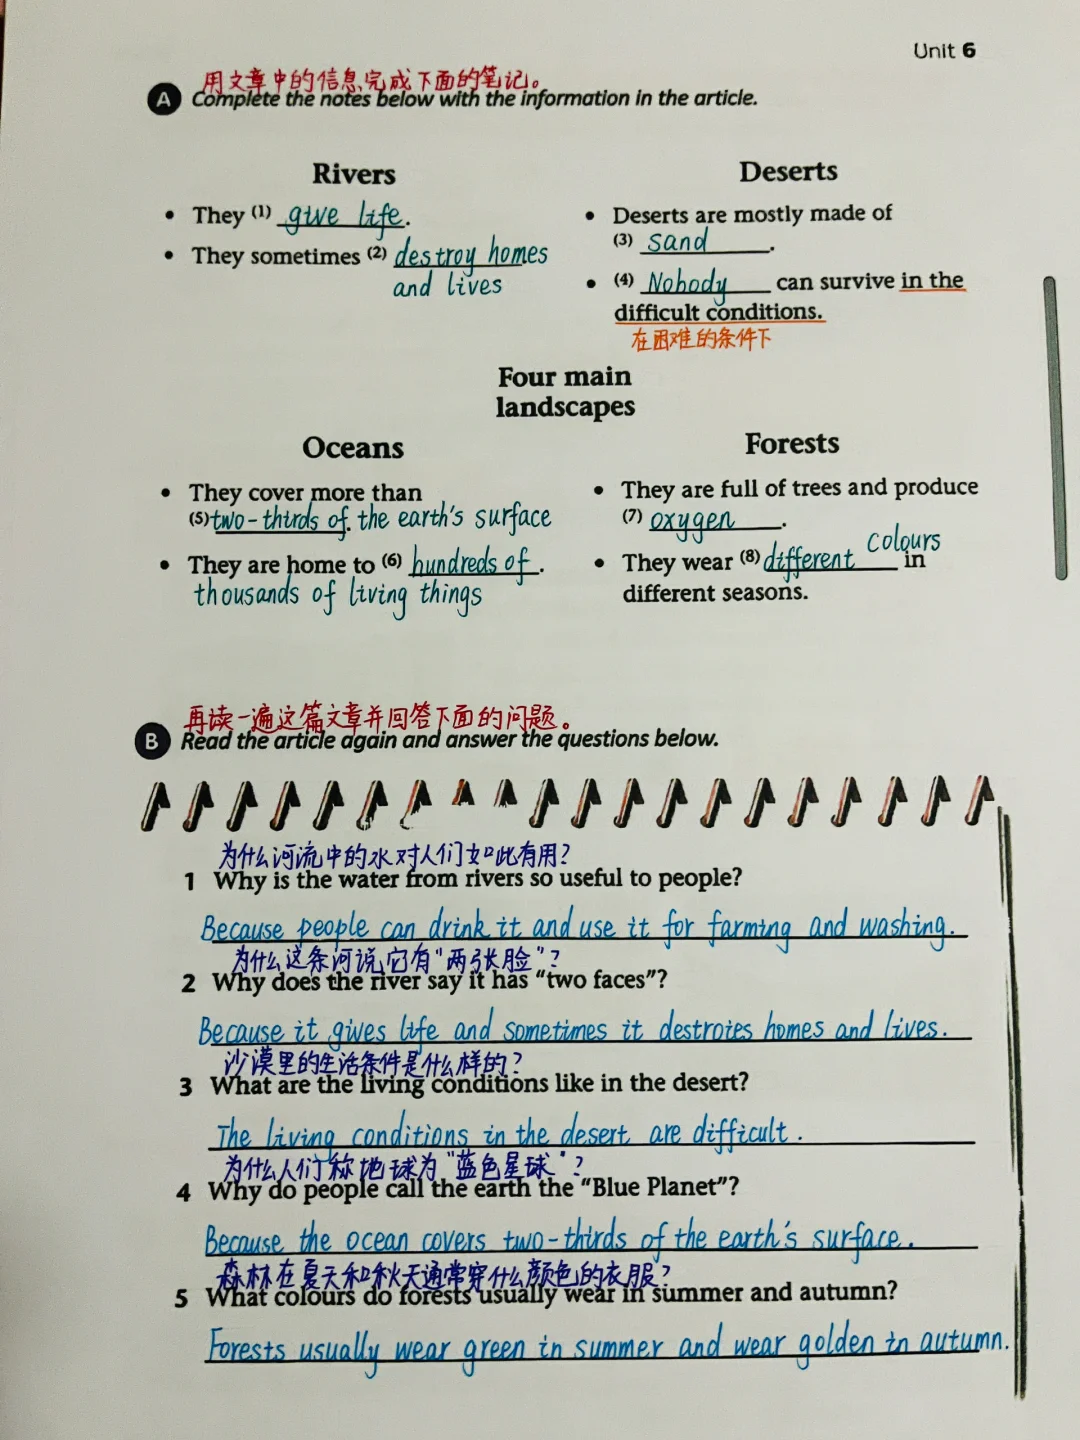 Unit 6
用文章中的信息完成下面的笔记。
A Complete the notes below with the information in the article.
Rivers
• They (1) give life.
• They sometimes (2) destroy homes
and lives
Deserts
• Deserts are mostly made of
(3) sand.
• (4) Nobody can survive in the
difficult conditions.
在困难的条件下
Four main
landscapes
Oceans
• They cover more than
(5) two-thirds of. the earth's surface
• They are home to (6) hundreds of.
thousands of living things
Forests
• They are full of trees and produce
(7) oxygen.
• They wear (8) different colours in
different seasons.
再读一遍这篇文章并回答下面的问题。
B Read the article again and answer the questions below.
为什么河流中的水对人们如此有用?
1 Why is the water from rivers so useful to people?
Because people can drink it and use it for farming and washing.
为什么这条河说它有“两张脸”?
2 Why does the river say it has “two faces”?
Because it gives life and sometimes it destroies homes and lives.
沙漠里的生活条件是什么样的?
3 What are the living conditions like in the desert?
The living conditions in the desert are difficult.
为什么人们称地球为“蓝色星球”?
4 Why do people call the earth the “Blue Planet”?
Because the ocean covers two-thirds of the earth's surface.
森林在夏天和秋天通常穿什么颜色的衣服?
5 What colours do forests usually wear in summer and autumn?
Forests usually wear green in summer and wear golden in autumn.